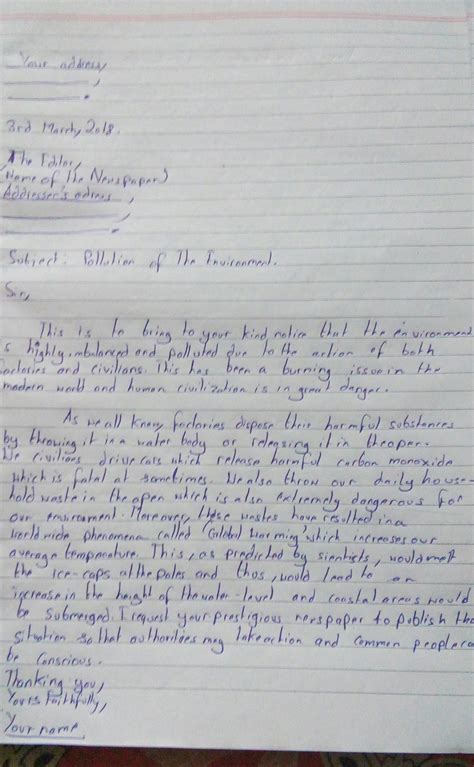 Your address,
,
.
3rd March, 2018.
The Editor,
Name of the Newspaper)
Addresser's adress
,
.
Subject: Pollution of The Environment.
Sir,
This is to bring to your kind notice that the environment
is highly imbalanced and polluted due to the action of both
factories and civilians. This has been a burning issue in the
modern world and human civilization is in great danger.
As we all know, factories dispose their harmful substances
by throwing it in a water body or releasing it in the open.
We civilians drive cars which release harmful carbon monoxide
which is fatal at sometimes. We also throw our daily house-
hold waste in the open which is also extremely dangerous for
our environment. Moreover, these wastes have resulted in a
world wide phenomena called Global Warming which increases our
average temparature. This, as predicted by sientists, would melt
the ice-caps at the poles and thus, would lead to an
increase in the height of the water-level and coastal areas would
be submerged. I request your prestigious newspaper to publish the
situation so that authorities may take action and common people can
be conscious.
Thanking you,
Yours Faithfully,
Your name.